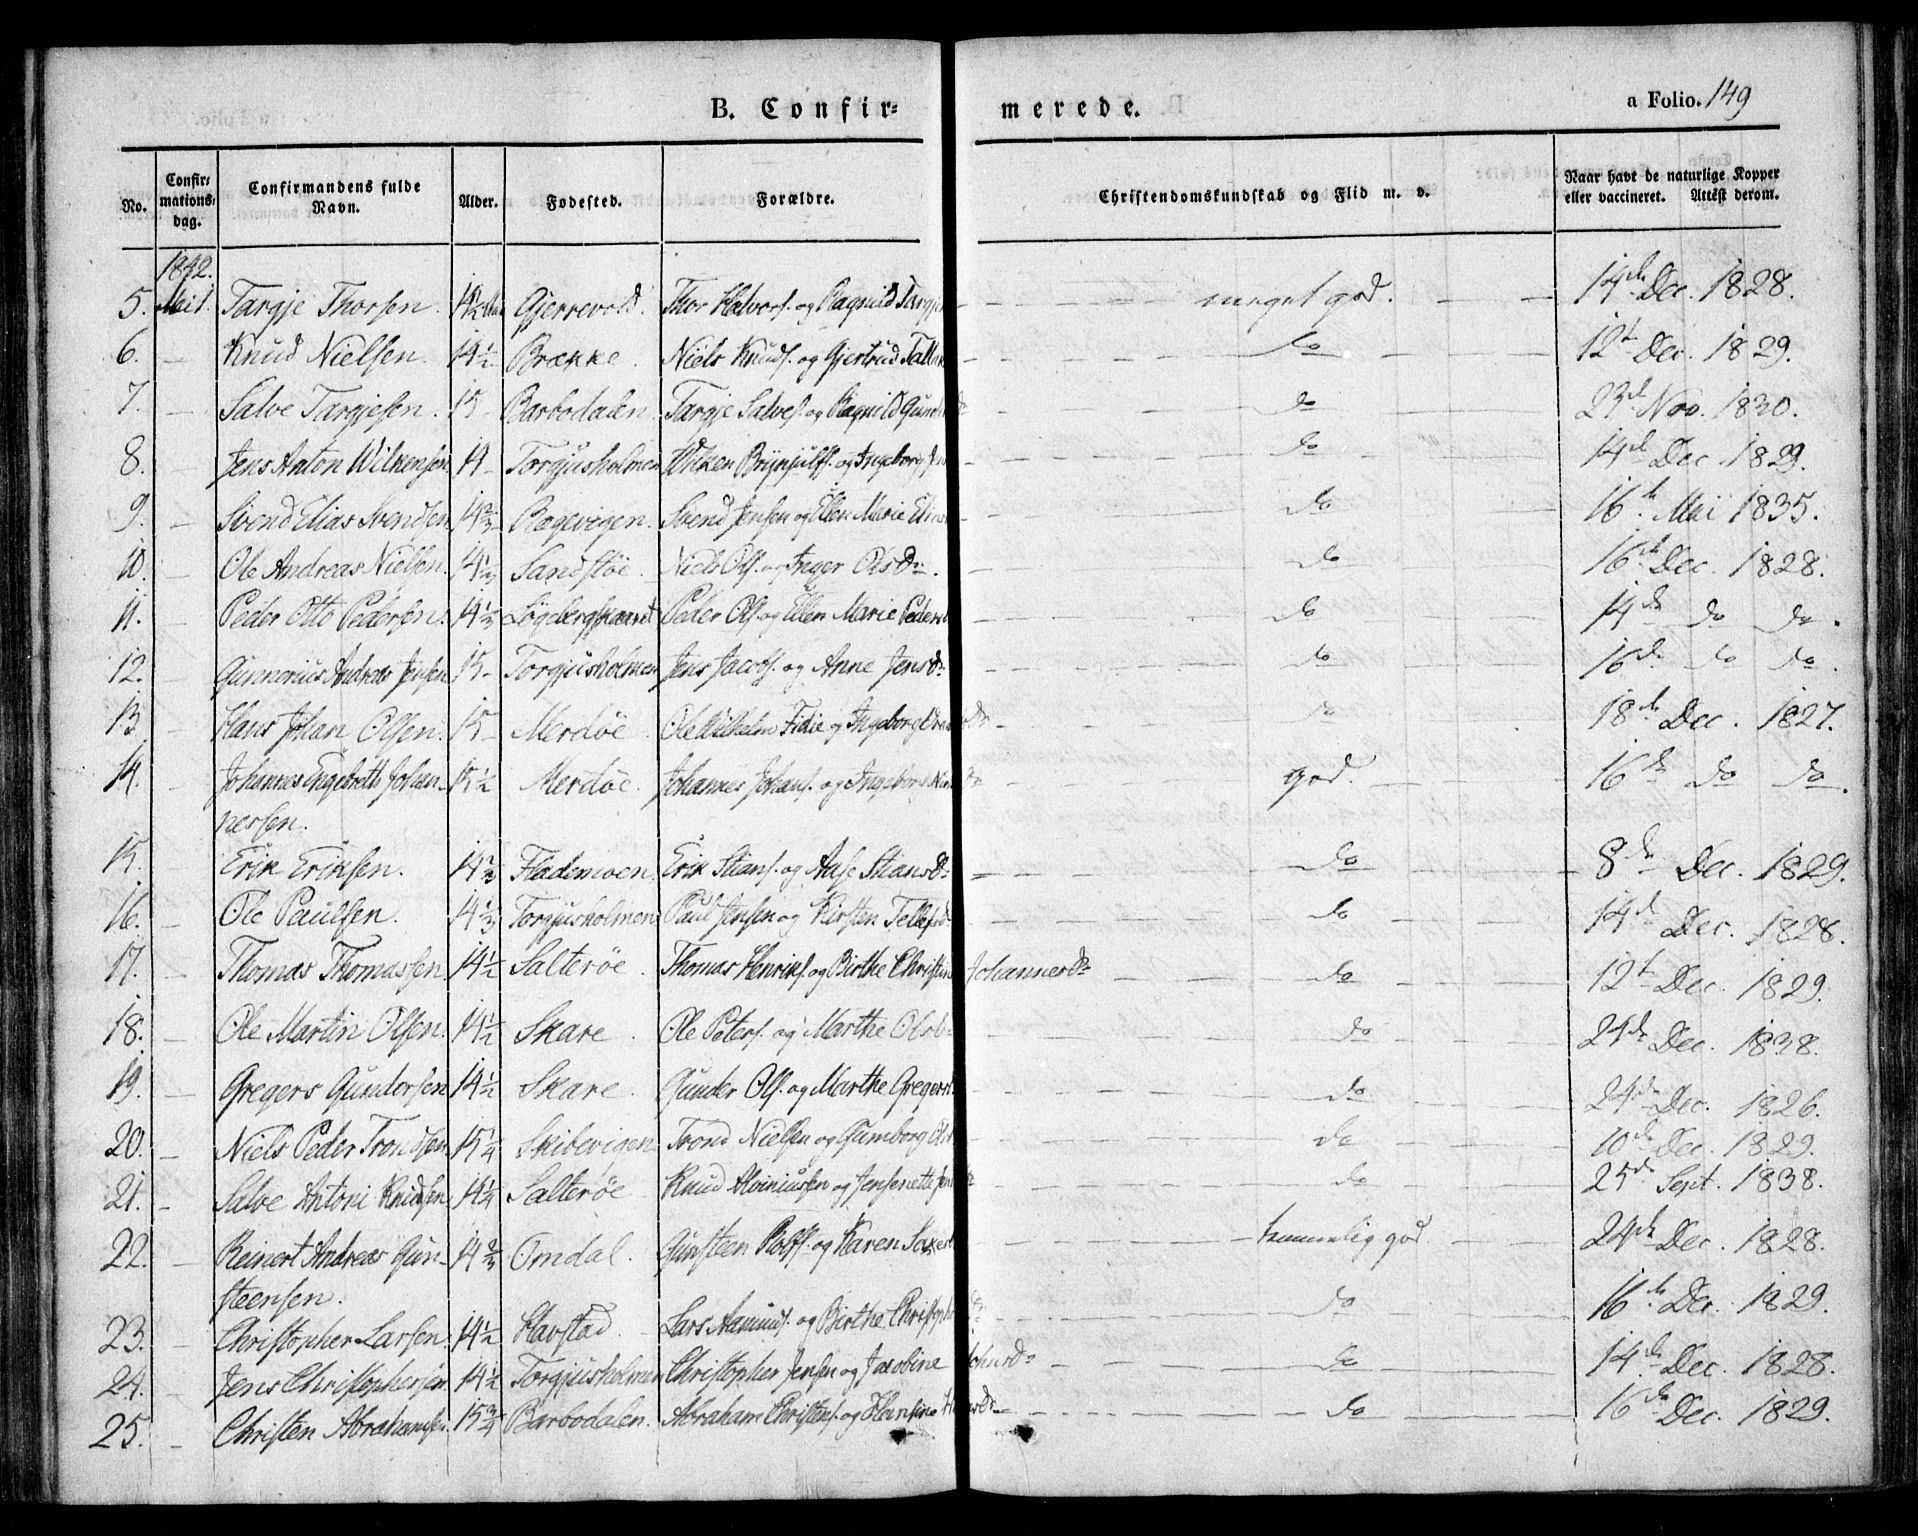 B. Confir= merede. a Folio. 149
No. Confir= mations= dag. Confirmandens fulde Navn. Alder. Fødested. Forældre. Christendomskundskab og Flid m. v. Naar havt de naturlige Kopper eller vaccineret. Attest derom.
1842.
5. Mai 1. Targje Thorsen. 14½ Gjerrevold. Thor Halvors. og Ragnild Targjes meget god. 14de Dec. 1828.
6. — Knud Nielsen. 14½ Brække. Niels Knuds. og Gjertrud do 12t Dec. 1829.
7. — Salve Targjesen. 15 Barbodalen. Targje Salves. og Ragnild do 23d Nov. 1830.
8. Jens Anton Wilkensen 14 Torgjusholmen Wilken Brynjulfs. og Ingeborg do 14de Dec. 1829.
9. — Svend Elias Svendsen 14⅔ Bagevigen. Svend Jensen og Ellen Marie do 16de Mai 1835.
10. — Ole Andreas Nielsen. 14⅓ Sandstøe. Niels Ols. og Inger Olsdr. do 16de Dec. 1828.
11. — Peder Otto Pedersen. 14⅓ Peder Ols. og Ellen Marie Pedersd do 14de do do.
12. — Gunnerius Andreas Jensen 15 Torgjusholmen Jens Jacobs. og Anne Jensdr do 16de do do.
13 — Hans Johan Olsen. 15 Merdöe. Ole Wilhelm Fidie og Ingeborg do 18de Dec. 1827.
14. — Johannes Engebreth Johan- 15½ Merdöe. Johannes Johans. og Ingeborg god. 16de do do.
nessen.
15. Erik Eriksen. 14⅔ Flademoen. Erik Stians. og Aase Stiansdr do 8de Dec. 1829.
16. — Ole Paulsen. 14⅓ Torgjusholmen Paul Jensen og Kirsten Tellefsd do 14de Dec. 1828.
17. — Thomas Thomassen 14½ Salterøe. Thomas Henriks. og Birthe Christine Johannesdr do 12t Dec. 1829.
18. — Ole Martin Olsen. 14½ Skare. Ole Peters. og Marthe Olsd do 24de Dec. 1838.
19. — Gregers Gundersen 14½ Skare. Gunder Ols. og Marthe Gregersd do 24de Dec. 1826.
20. — Niels Peder Trondsen 15¼ Skibevigen Trond Nielsen og Gumborg do 10de Dec. 1829.
21. — Salve Antoni Knudsen 14¼ Salterøe Knud Alviniussen og Jensenette do 25de Sept. 1838.
22. — Reinert Andreas Gun- 14⅔ Omdal. Gunsteen Rolfs. og Karen temmelig god 24de Dec. 1828.
steensen.
23. — Christopher Larsen. 14½ Havstad. Lars Aamunds. og Birthe do 16de Dec. 1829.
24. — Jens Christophersen 14½ Torgjusholmen Christopher Jensen og Jacobine do 14de Dec. 1828.
25. — Christen Abrahamsen. 15¾ Barbodalen. Abraham Christens. og do 16de Dec. 1829.